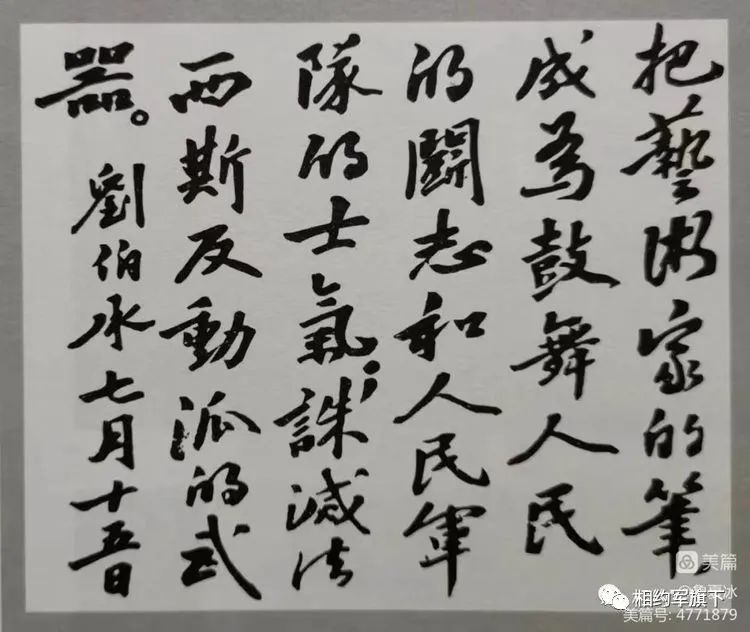 把藝術家的筆
成為鼓舞人民
的鬪志和人民軍
隊的士氣；誅滅法
西斯反動派的武
器。劉伯承七月十五日
美篇
相约军旗下
美篇号: 4771879